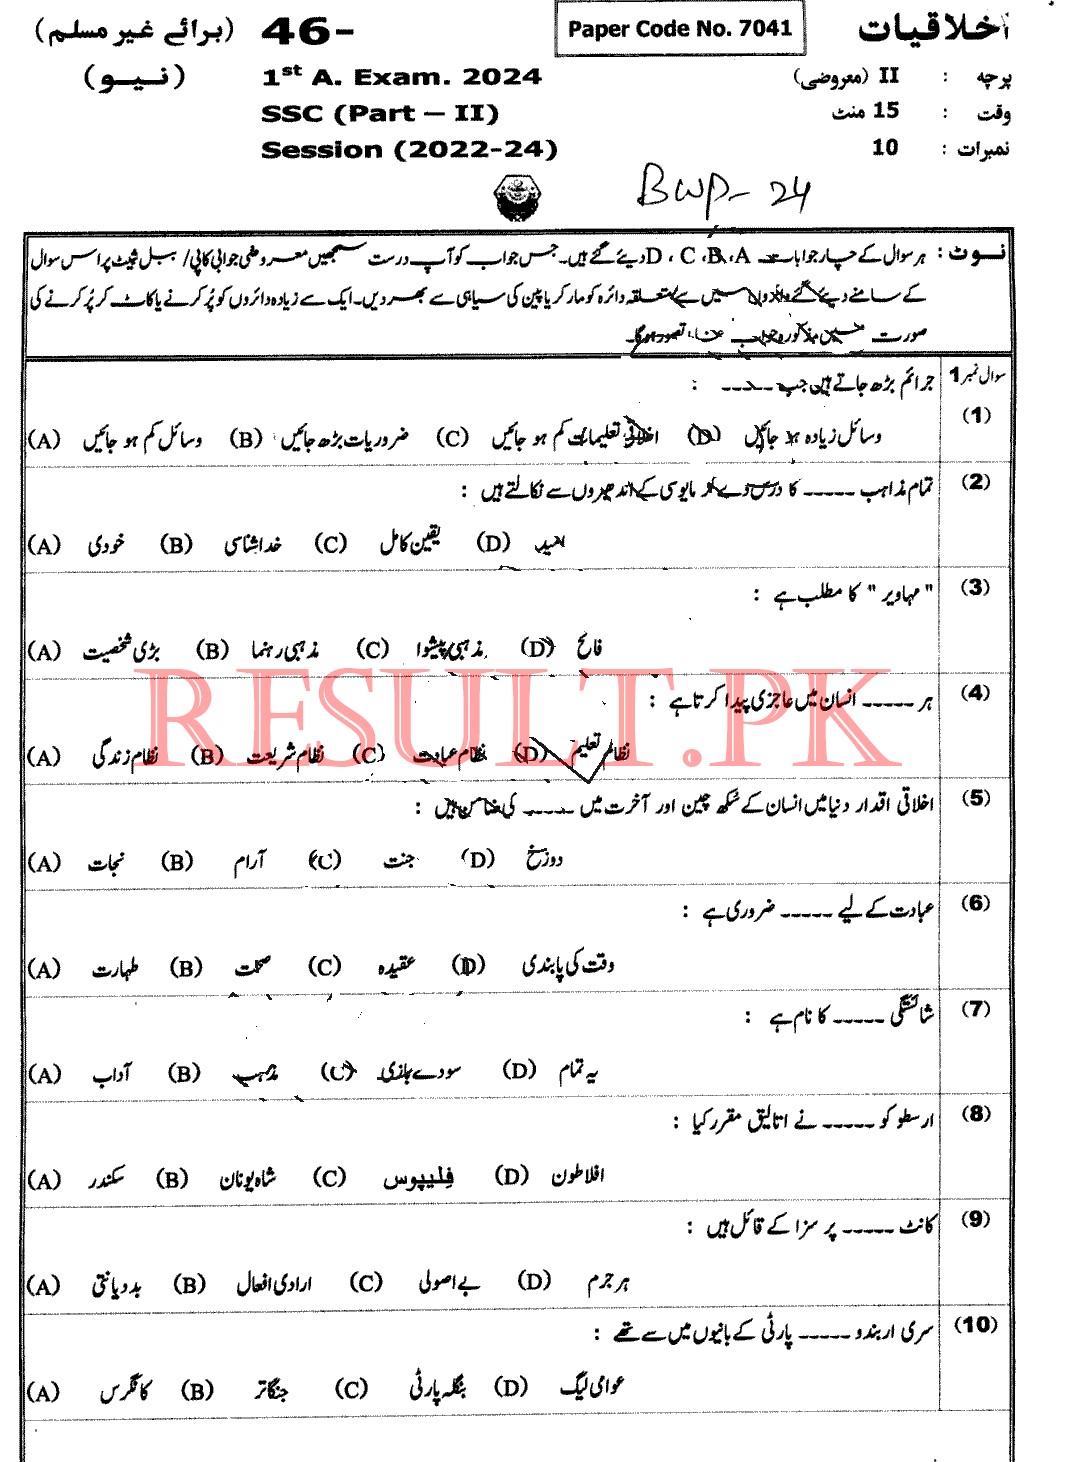 اخلاقیات Paper Code No. 7041 46- (برائے غیر مسلم)
پرچہ : II (معروضی) 1st A. Exam. 2024 (نیو)
وقت : 15 منٹ SSC (Part – II)
نمبرات : 10 Session (2022-24)
BWP-24
نوٹ : ہر سوال کے چار جوابات D ، C ،B ،A دیئے گئے ہیں۔ جس جواب کو آپ درست سمجھیں معروضی جوابی کاپی/ ببل شیٹ پر اس سوال
کے سامنے دیئے گئے دائروں میں سے متعلقہ دائرہ کو مارکر یا پین کی سیاہی سے بھر دیں۔ ایک سے زیادہ دائروں کو پُر کرنے یا کاٹ کر پُر کرنے کی
صورت میں مذکورہ جواب غلط تصور ہوگا۔
سوال نمبر 1 جرائم بڑھ جاتے ہیں جب ----- :
(1)
(A) وسائل کم ہو جائیں (B) ضروریات بڑھ جائیں (C) اخلاقی تعلیمات کم ہو جائیں (D) وسائل زیادہ ہو جائیں
(2) تمام مذاہب ----- کا درس دے کر مایوسی کے اندھیروں سے نکالتے ہیں :
(A) خودی (B) خداشناسی (C) یقین کامل (D) امید
(3) " مہاویر " کا مطلب ہے :
(A) بڑی شخصیت (B) مذہبی رہنما (C) مذہبی پیشوا (D) فاتح
RESULT.PK
(4) ہر ----- انسان میں عاجزی پیدا کرتا ہے :
(A) نظام زندگی (B) نظام شریعت (C) نظام عبادت (D) نظام تعلیم
(5) اخلاقی اقدار دنیا میں انسان کے سکھ چین اور آخرت میں ----- کی ضامن ہیں :
(A) نجات (B) آرام (C) جنت (D) دوزخ
(6) عبادت کے لیے ----- ضروری ہے :
(A) طہارت (B) صحت (C) عقیدہ (D) وقت کی پابندی
(7) شائستگی ----- کا نام ہے :
(A) آداب (B) مذہب (C) سودے بازی (D) یہ تمام
(8) ارسطو کو ----- نے اتالیق مقرر کیا :
(A) سکندر (B) شاہ یونان (C) فلیپوس (D) افلاطون
(9) کانٹ ----- پر سزا کے قائل ہیں :
(A) بددیانتی (B) ارادی افعال (C) بے اصولی (D) ہر جرم
(10) سری اربندو ----- پارٹی کے بانیوں میں سے تھے :
(A) کانگرس (B) جنگاتر (C) بنگلہ پارٹی (D) عوامی لیگ